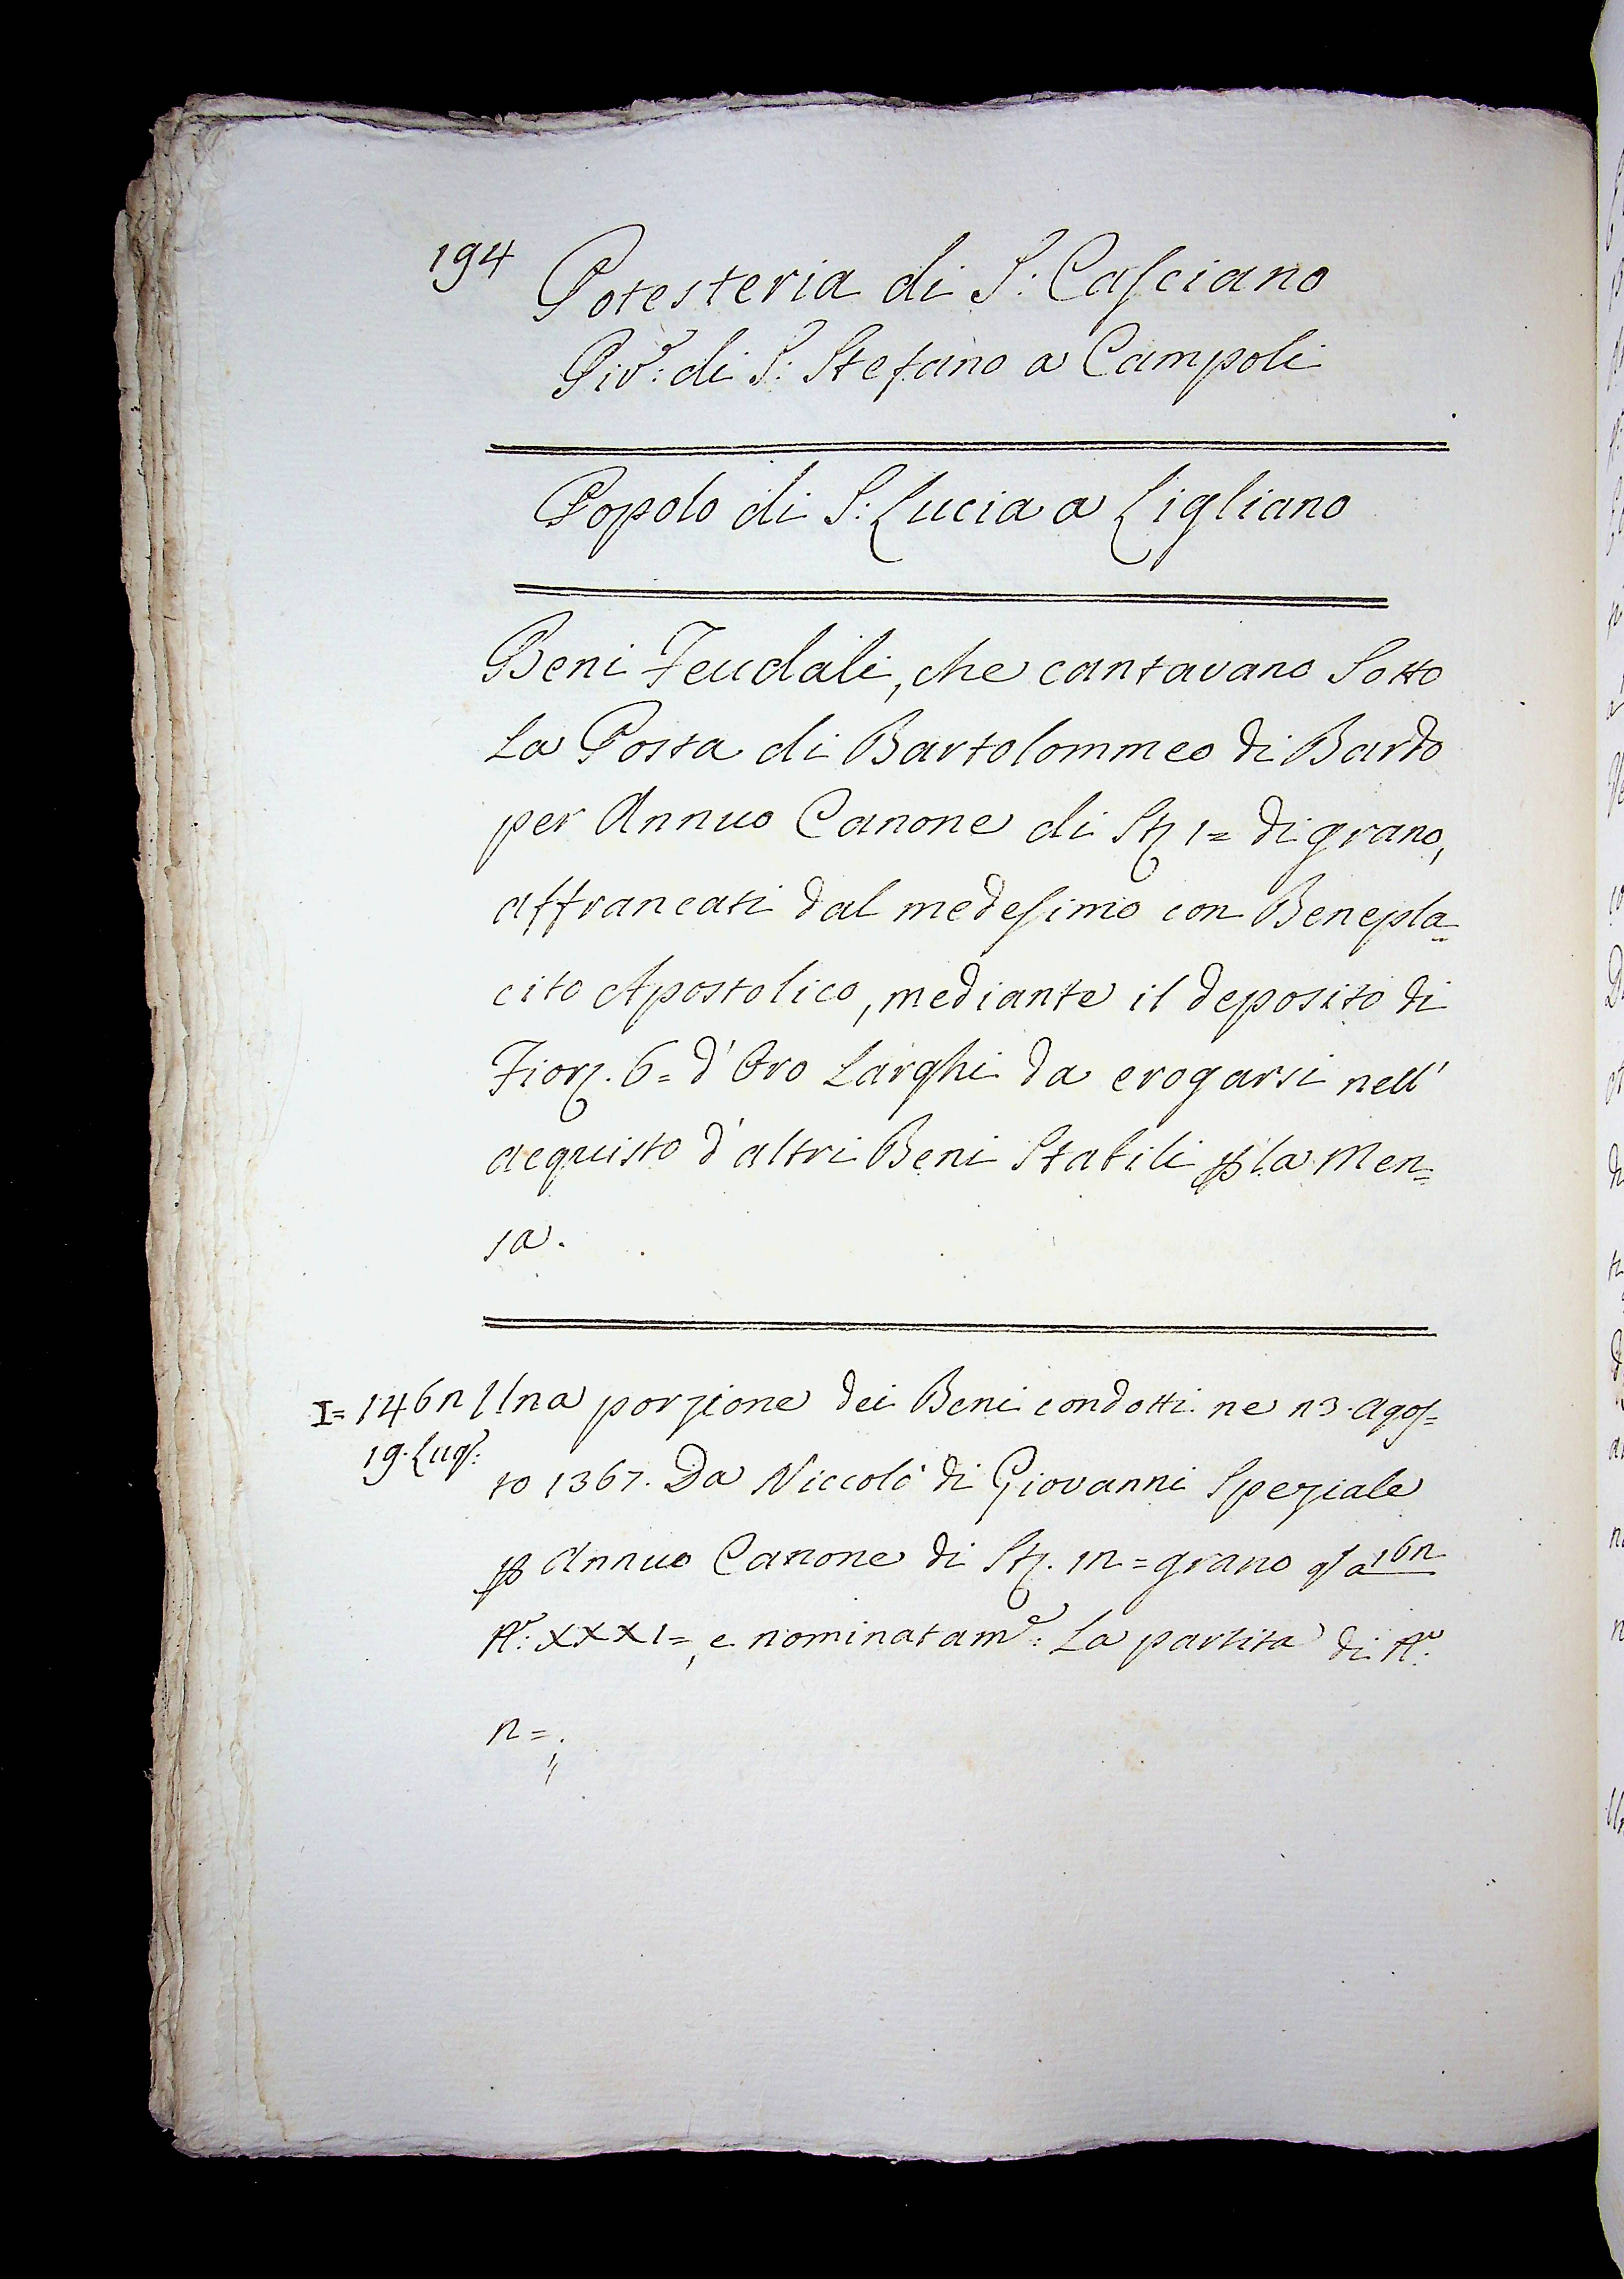 194
Potesteria di S: Casciano
Piv.e: di S: Stefano a Campoli
Popolo di S: Lucia a Ligliano
Beni Feudali, che cantavano Sotto
La Posta di Bartolommeo di Bardo
per Annuo Canone di St 1= di grano,
affrancati dal medesimo con Benepla=
cito Apostolico, mediante il deposito di
Fior. 6= d'Oro Larghi da erogarsi nell'
acquisto d'altri Beni Stabili p la Men=
sa.
I= 1462
19. Lug:
Una porzione dei Beni condotti ne 23. Agos=
to 1367. Da Niccolò di Giovanni Speziale
p Annuo Canone di St. 12= grano a 162
N.o: XXXI=, e nominatam.e: La partita di N.o
2=.